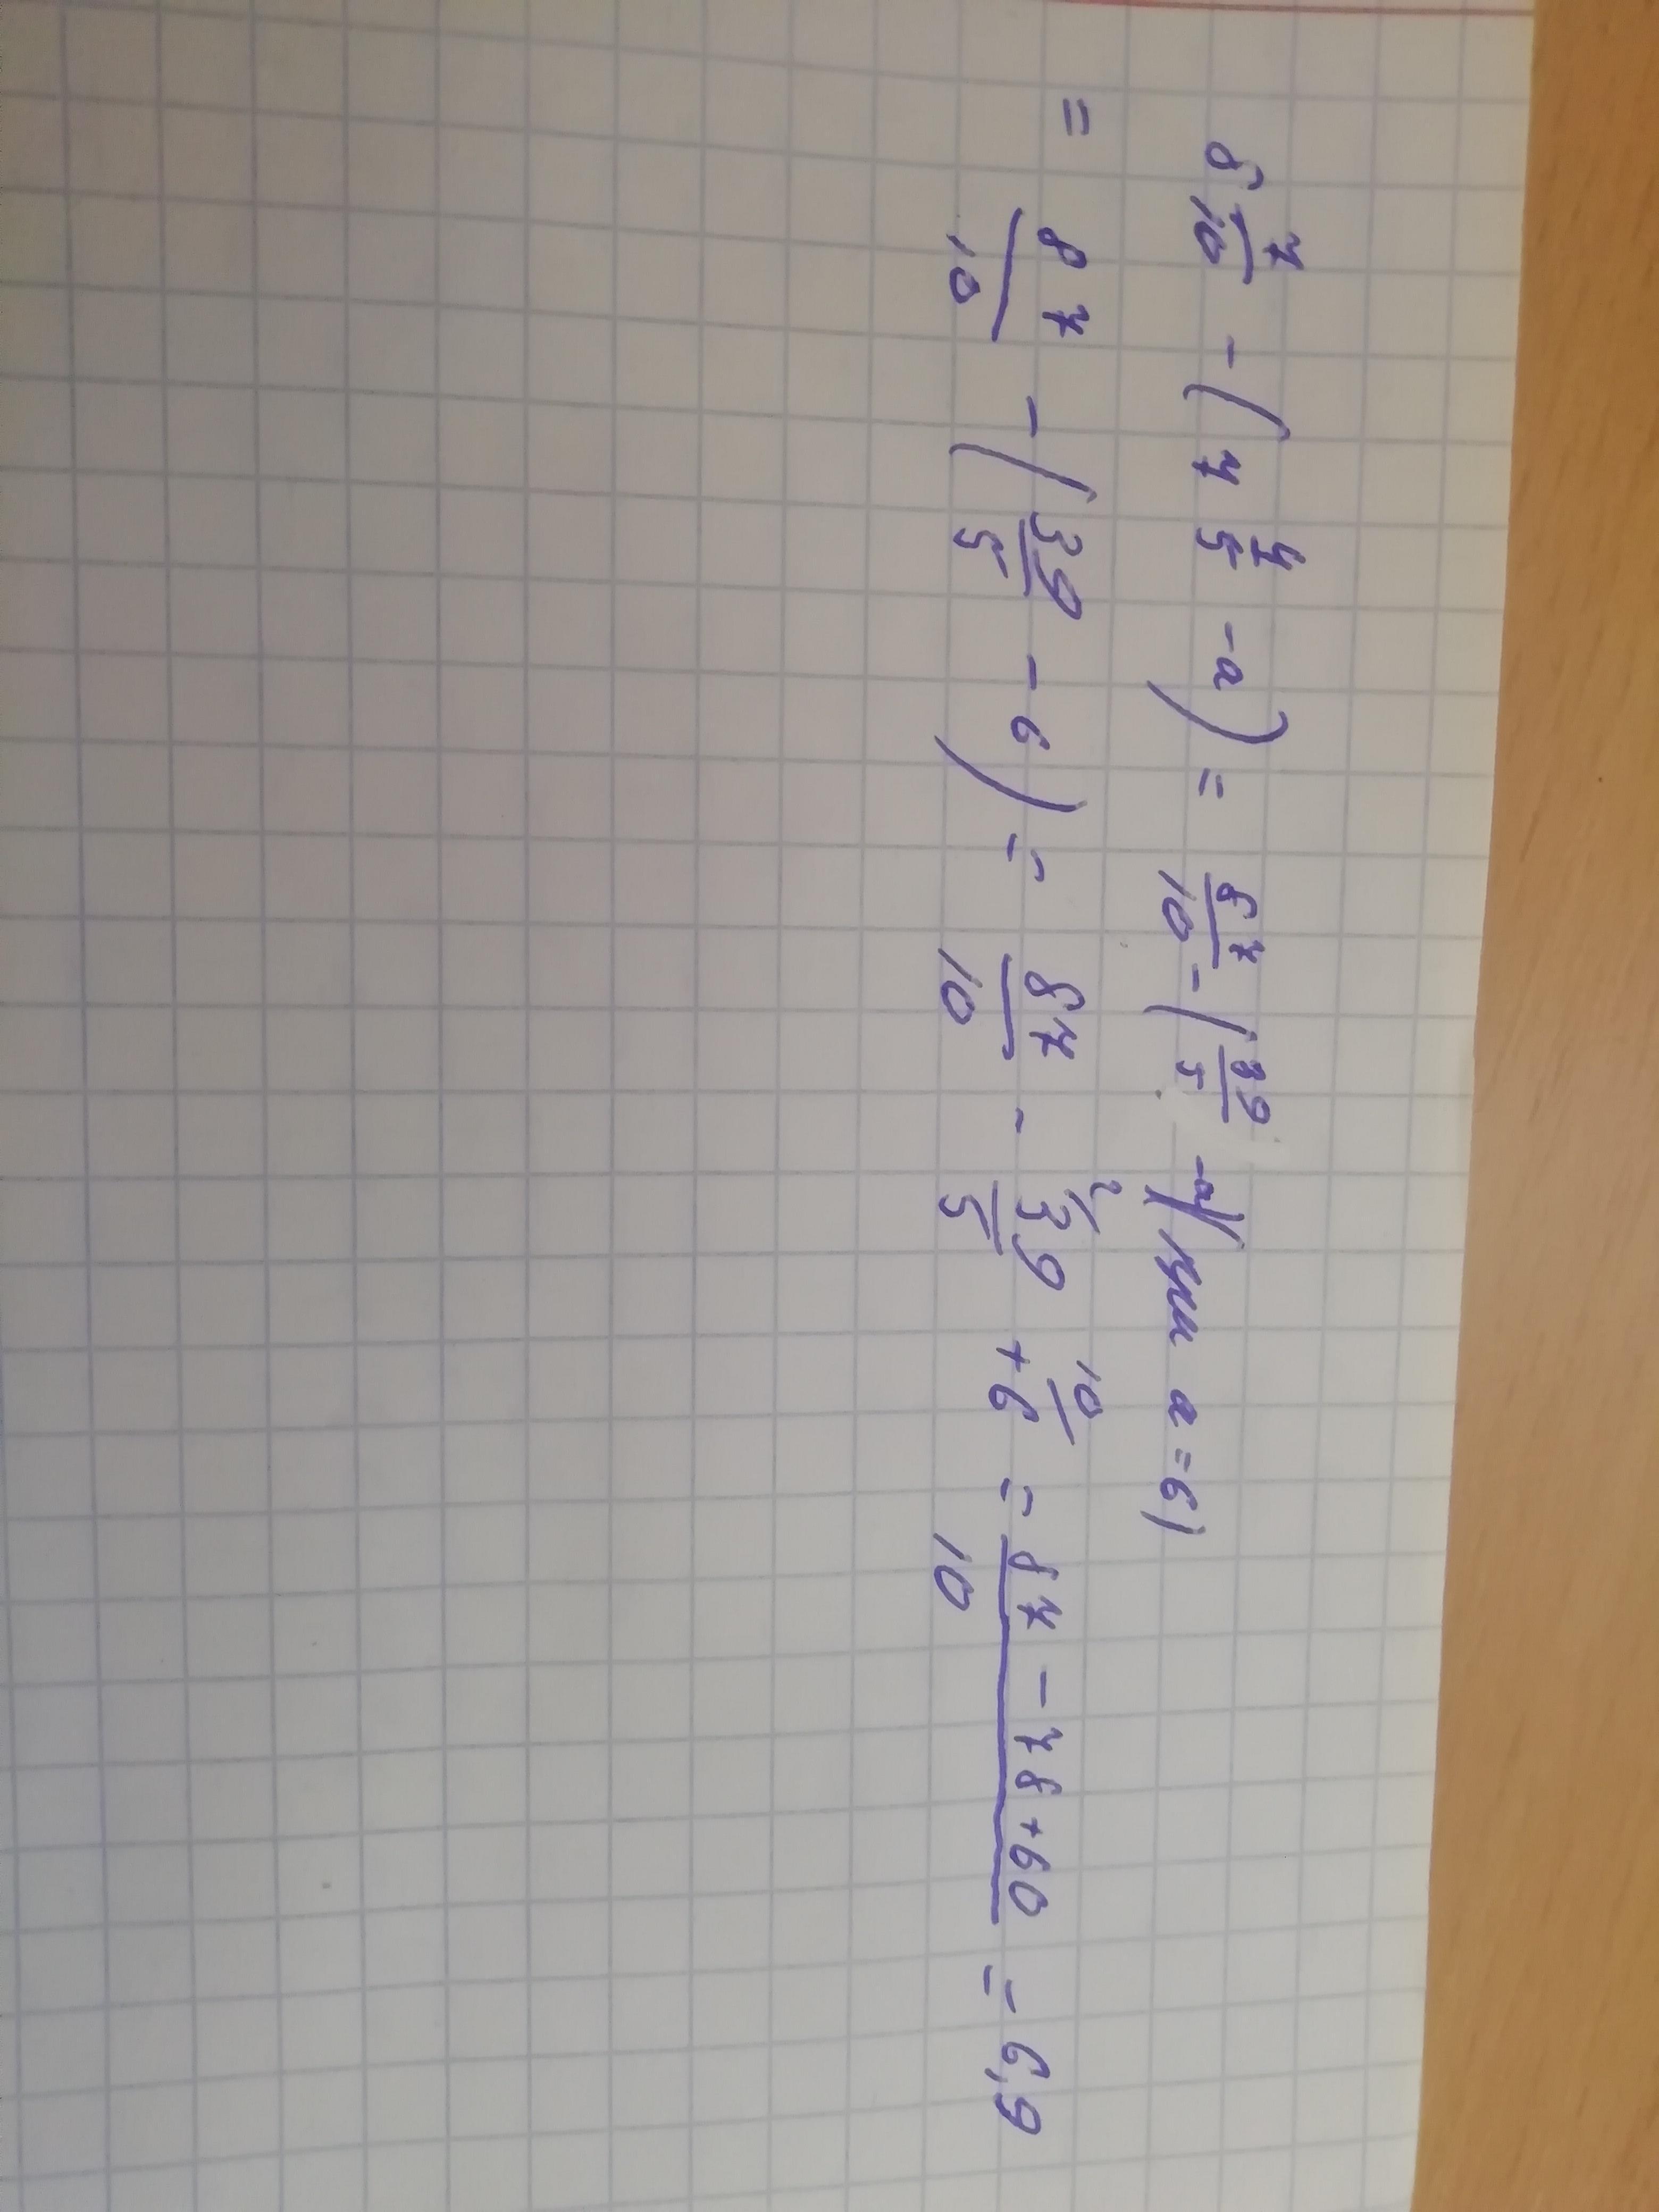 8 7/10 - (7 4/5 - a) = 87/10 - (39/5 - a) (при a = 6)
= 87/10 - (39/5 - 6) = 87/10 - 39/5 + 6 = (87 - 78 + 60)/10 = 6,9